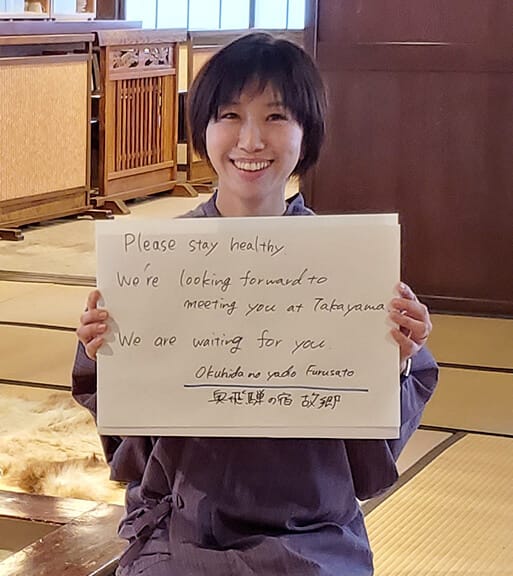 Please stay healthy.
We're looking forward to
meeting you at Takayama
We are waiting for you.
Okuhida no yado Furusato
奥飛騨の宿 故郷